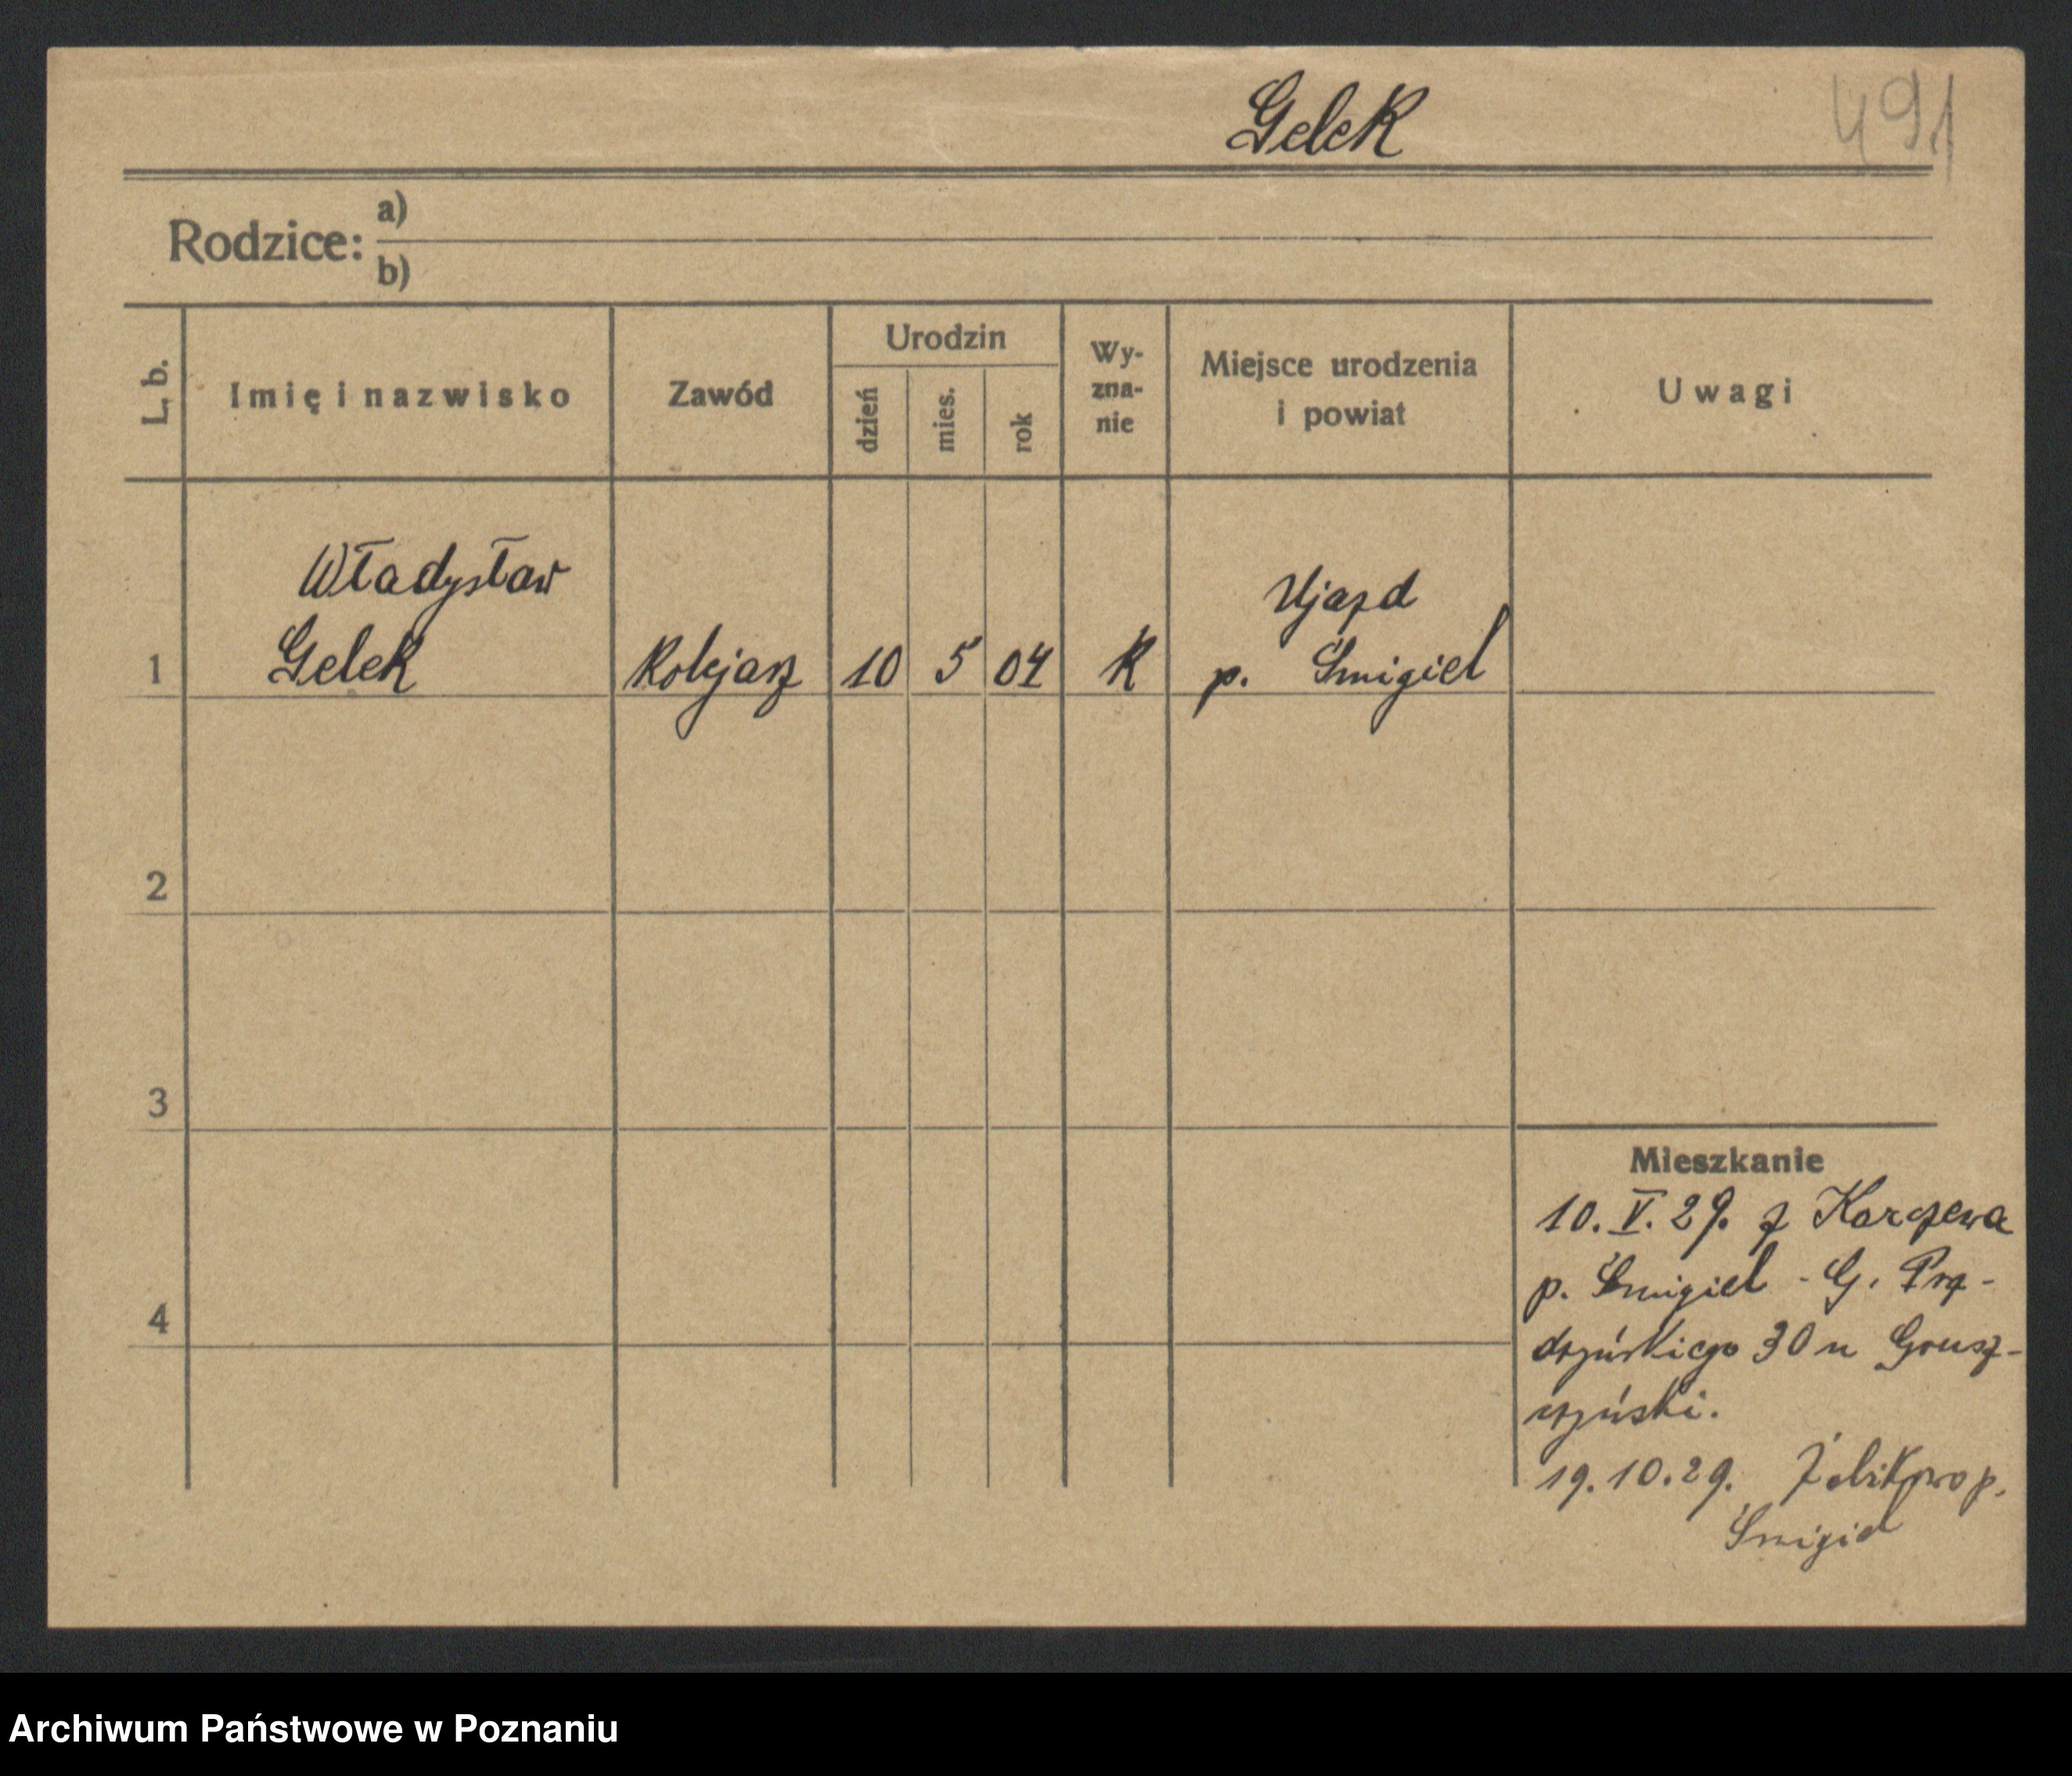 Gelek
491
Rodzice: a)
b)
L. b.
Imię i nazwisko
Zawód
Urodzin
dzień
mies.
rok
Wy-
zna-
nie
Miejsce urodzenia
i powiat
Uwagi
Władysław
Gelek
1
Kolejarz
10
5
04
K
Ujazd
p. Śmigiel
2
3
4
Mieszkanie
10. V. 29. z Karczewa
p. Śmigiel - G. Prą-
dzyńskiego 30 u Grusz-
czyński.
19.10.29. Żelikowo p.
Śmigiel
Archiwum Państwowe w Poznaniu